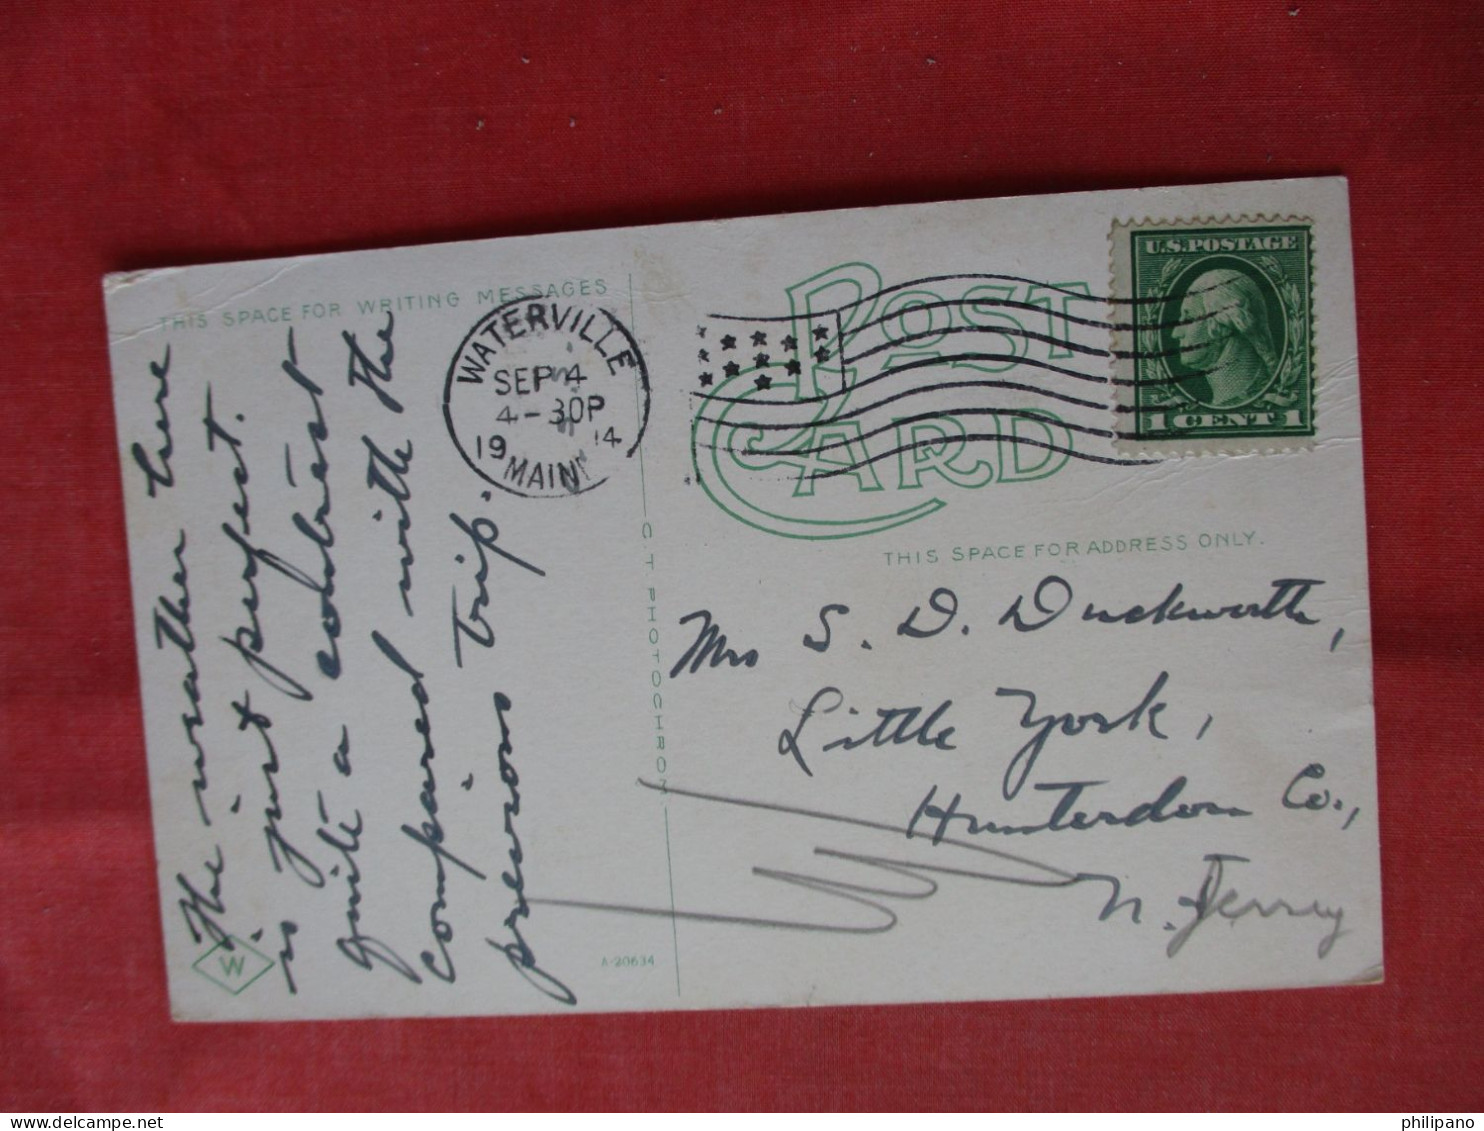 THIS SPACE FOR WRITING MESSAGES
The weather here
is just perfect.
quite a contrast
compared with the
previous trip.
W
A-20634
C.T PHOTOCHROM
WATERVILLE
SEP 4
4-30P
19 14
MAINE
POST
CARD
THIS SPACE FOR ADDRESS ONLY.
U.S. POSTAGE
1 CENT 1
Mrs S. D. Duckworth,
Little York,
Hunterdon Co.,
N. Jersey
philipano